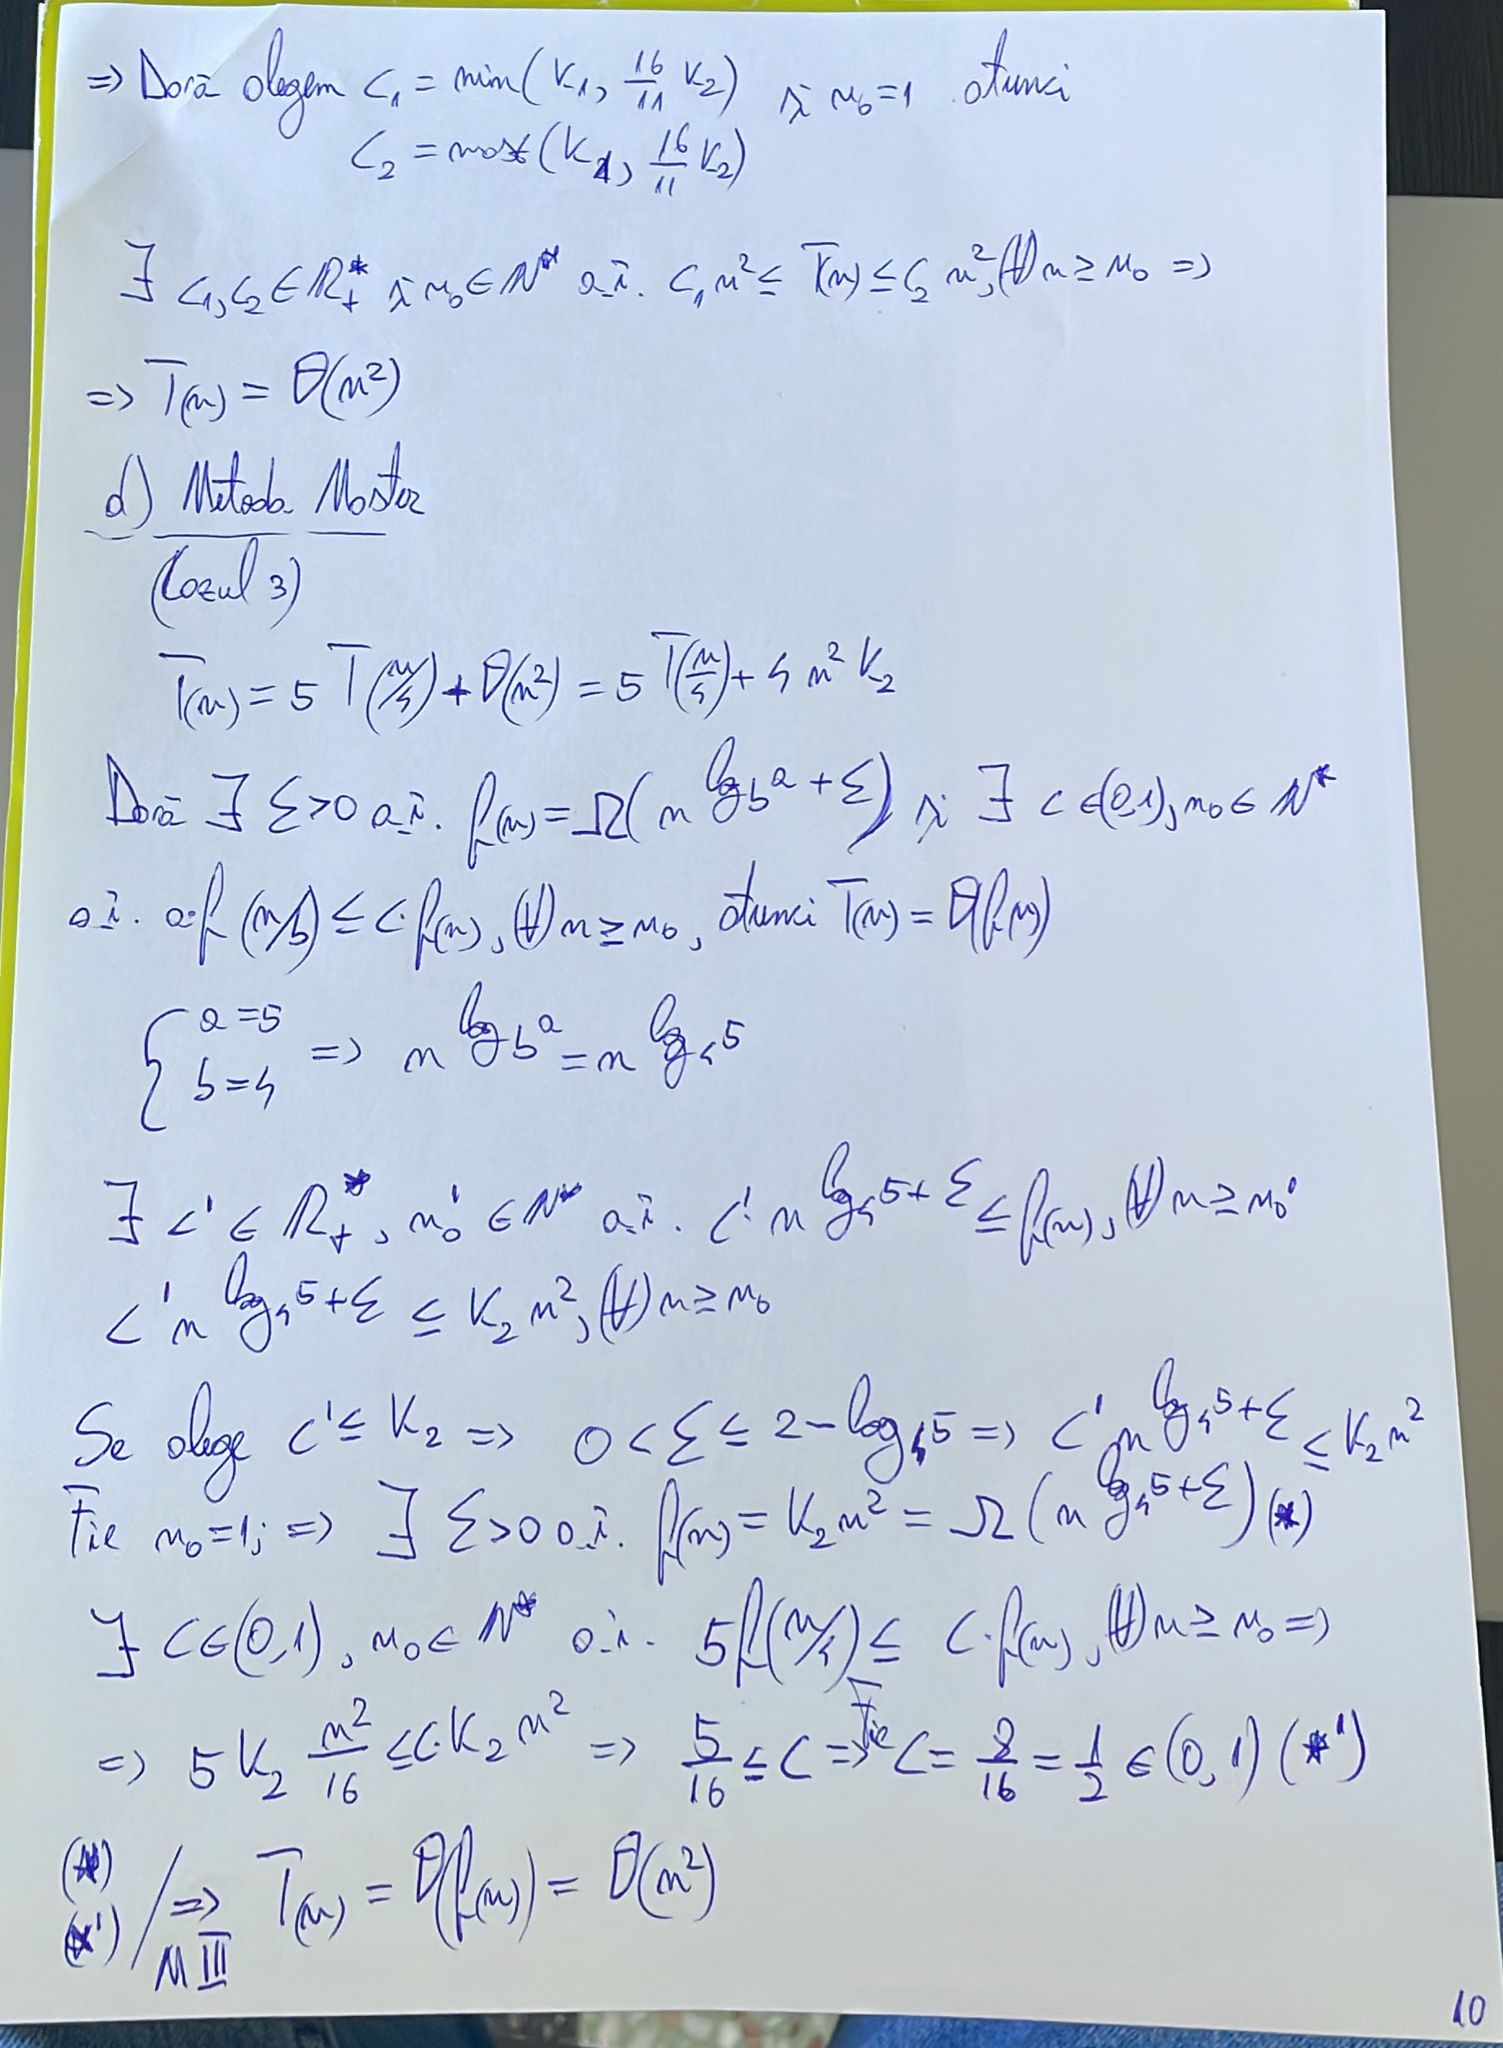 => Dacă alegem C₁ = min(K₁, 16/11 K₂) și n₀=1 atunci
C₂ = max(K₁, 16/11 K₂)
∃ C₁,C₂ ∈ R₊* și n₀ ∈ N* a.î. C₁n² ≤ T(n) ≤ C₂ n², (∀) n ≥ n₀ =>
=> T(n) = θ(n²)
d) Metoda Master
(Cazul 3)
T(n) = 5 T(n/4) + θ(n²) = 5 T(n/4) + 4 n² K₂
Dacă ∃ ε>0 a.î. f(n) = Ω(n^(log_b a + ε)) și ∃ c ∈ (0,1), n₀ ∈ N*
a.î. a·f(n/b) ≤ c·f(n), (∀) n ≥ n₀, atunci T(n) = θ(f(n))
{ a=5
b=4 => n^(log_b a) = n^(log₄ 5)
∃ c' ∈ R₊*, n₀' ∈ N* a.î. c'·n^(log₄ 5 + ε) ≤ f(n), (∀) n ≥ n₀'
c'n^(log₄ 5 + ε) ≤ K₂ n², (∀) n ≥ n₀
Se alege c' ≤ K₂ => 0 < ε ≤ 2 - log₄ 5 => c'n^(log₄ 5 + ε) ≤ K₂ n²
Fie n₀=1; => ∃ ε>0 a.î. f(n) = K₂n² = Ω(n^(log₄ 5 + ε)) (*)
∃ C ∈ (0,1), n₀ ∈ N* a.î. 5f(n/4) ≤ C·f(n), (∀) n ≥ n₀ =>
=> 5 K₂ n²/16 ≤ C·K₂ n² => 5/16 ≤ C => Fie C = 8/16 = 1/2 ∈ (0,1) (*')
(*)
(*') / => M III T(n) = θ(f(n)) = θ(n²)
10